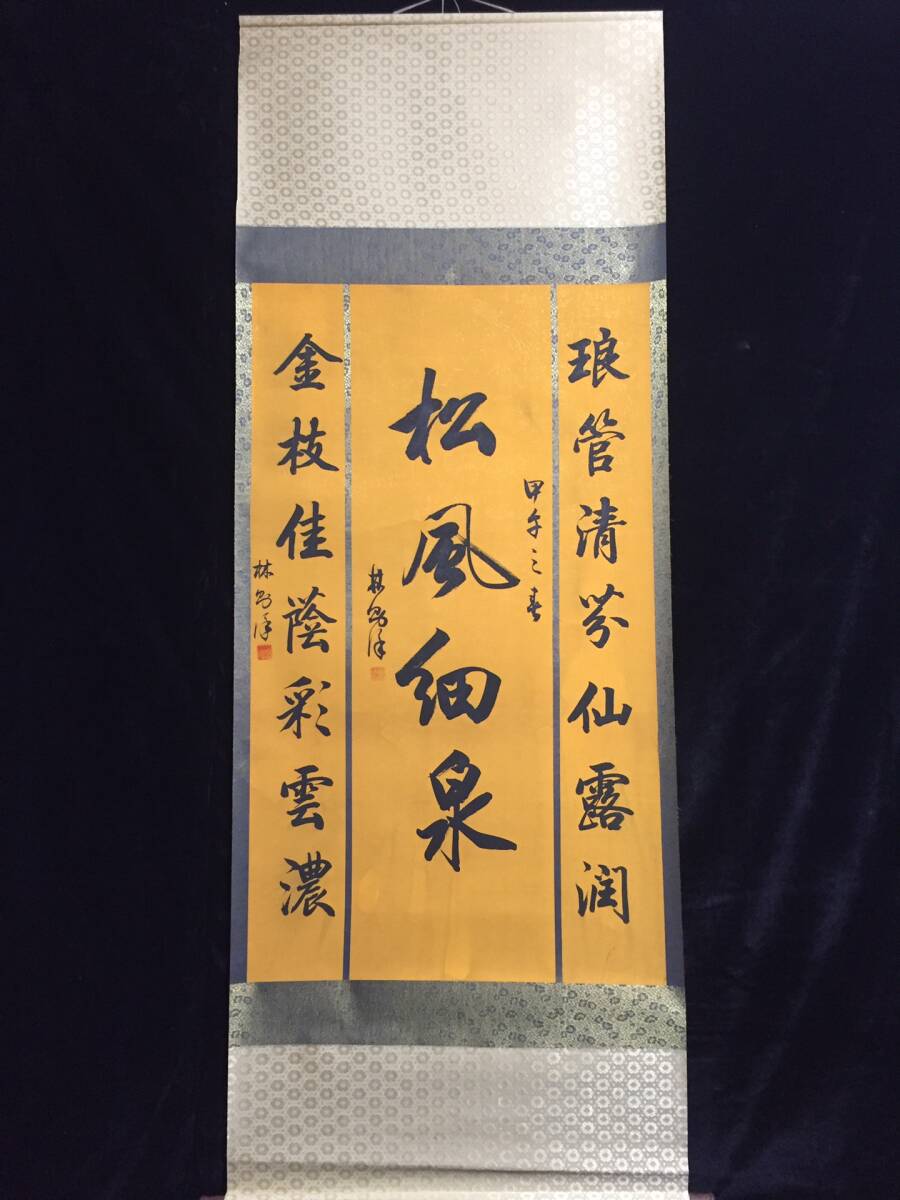 琅管清芬仙露润
甲午之春
松風細泉
林則徐
金枝佳蔭彩雲濃
林則徐